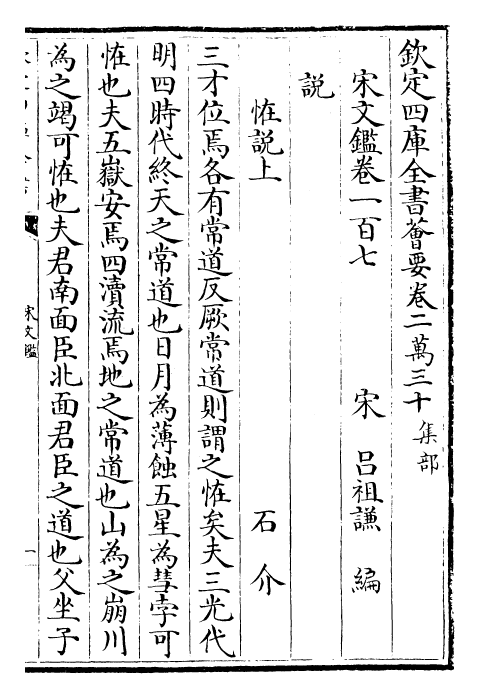 欽定四庫全書薈要卷二萬三十集部
宋文鑑卷一百七　宋　呂祖謙　編
説
恠説上　石介
三才位焉各有常道反厥常道則謂之恠矣夫三光代
明四時代終天之常道也日月為薄蝕五星為彗孛可
恠也夫五嶽安焉四瀆流焉地之常道也山為之崩川
為之竭可恠也夫君南面臣北面君臣之道也父坐子
宋文鑑
一